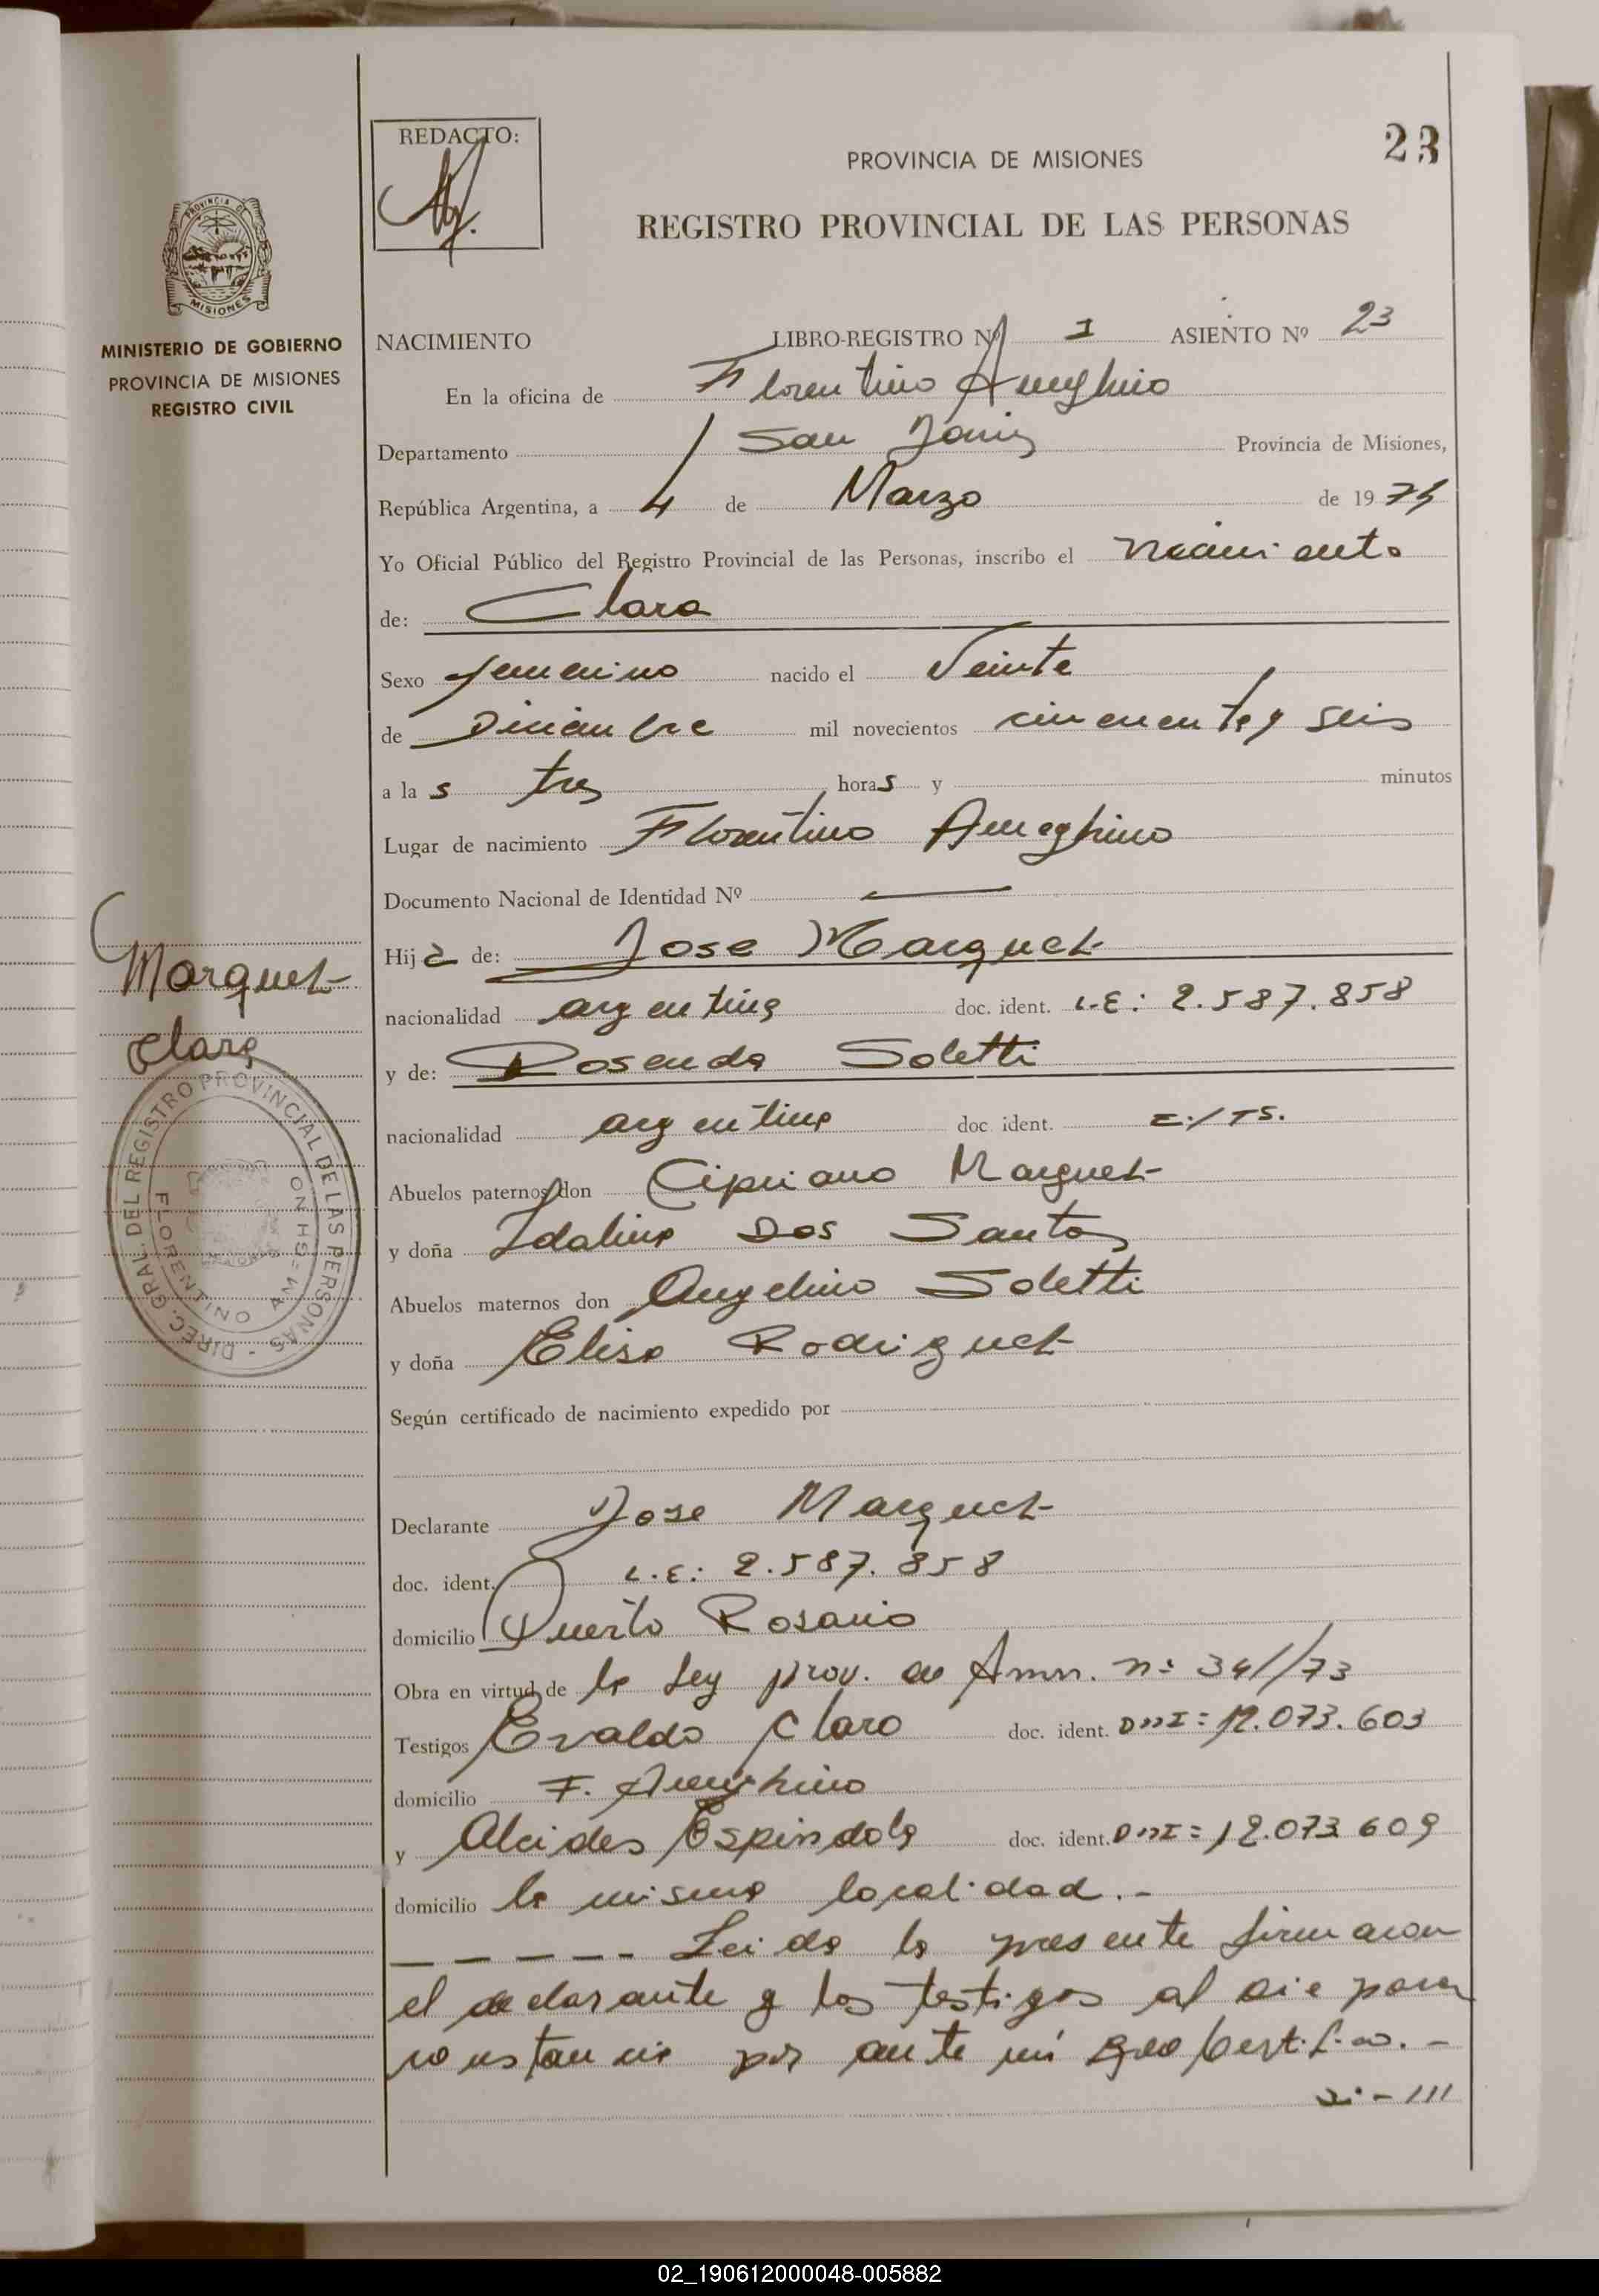 REDACTO:
23
PROVINCIA DE MISIONES
REGISTRO PROVINCIAL DE LAS PERSONAS
PROVINCIA DE
MISIONES
MINISTERIO DE GOBIERNO
PROVINCIA DE MISIONES
REGISTRO CIVIL
NACIMIENTO LIBRO-REGISTRO Nº 1 ASIENTO Nº 23
En la oficina de Florentino Ameghino
Departamento San Javier Provincia de Misiones,
República Argentina, a 4 de Marzo de 19 74
Yo Oficial Público del Registro Provincial de las Personas, inscribo el nacimiento
de: Clara
Sexo femenino nacido el Veinte
de Diciembre mil novecientos cincuenta y seis
a la s tres horas y minutos
Lugar de nacimiento Florentino Ameghino
Documento Nacional de Identidad Nº —
Hij a de: Jose Marquez
nacionalidad argentina doc. ident. L.E: 2.587.858
y de: Rosenda Soletti
nacionalidad argentina doc. ident.
Abuelos paternos don Cipriano Marquez
y doña Idalina Dos Santos
Abuelos maternos don Angelino Soletti
y doña Elisa Rodriguez
Según certificado de nacimiento expedido por
Declarante Jose Marquez
doc. ident. L.E: 2.587.858
domicilio Puerto Rosario
Obra en virtud de la Ley prov. de Amn. n= 34//73
Testigos Evaldo Claro doc. ident. DNI= 12.073.603
domicilio F. Ameghino
y Alcides Espindola doc. ident. DNI= 12.073 609
domicilio la misma localidad.-
----- Leida la presente firmaron
el declarante y los testigos al pie para
constancia por ante mi que certifico.-
-///
Marquez
Clara
DIREC. GRAL. DEL REGISTRO PROVINCIAL DE LAS PERSONAS -
FLORENTINO AMEGHINO
02_190612000048-005882